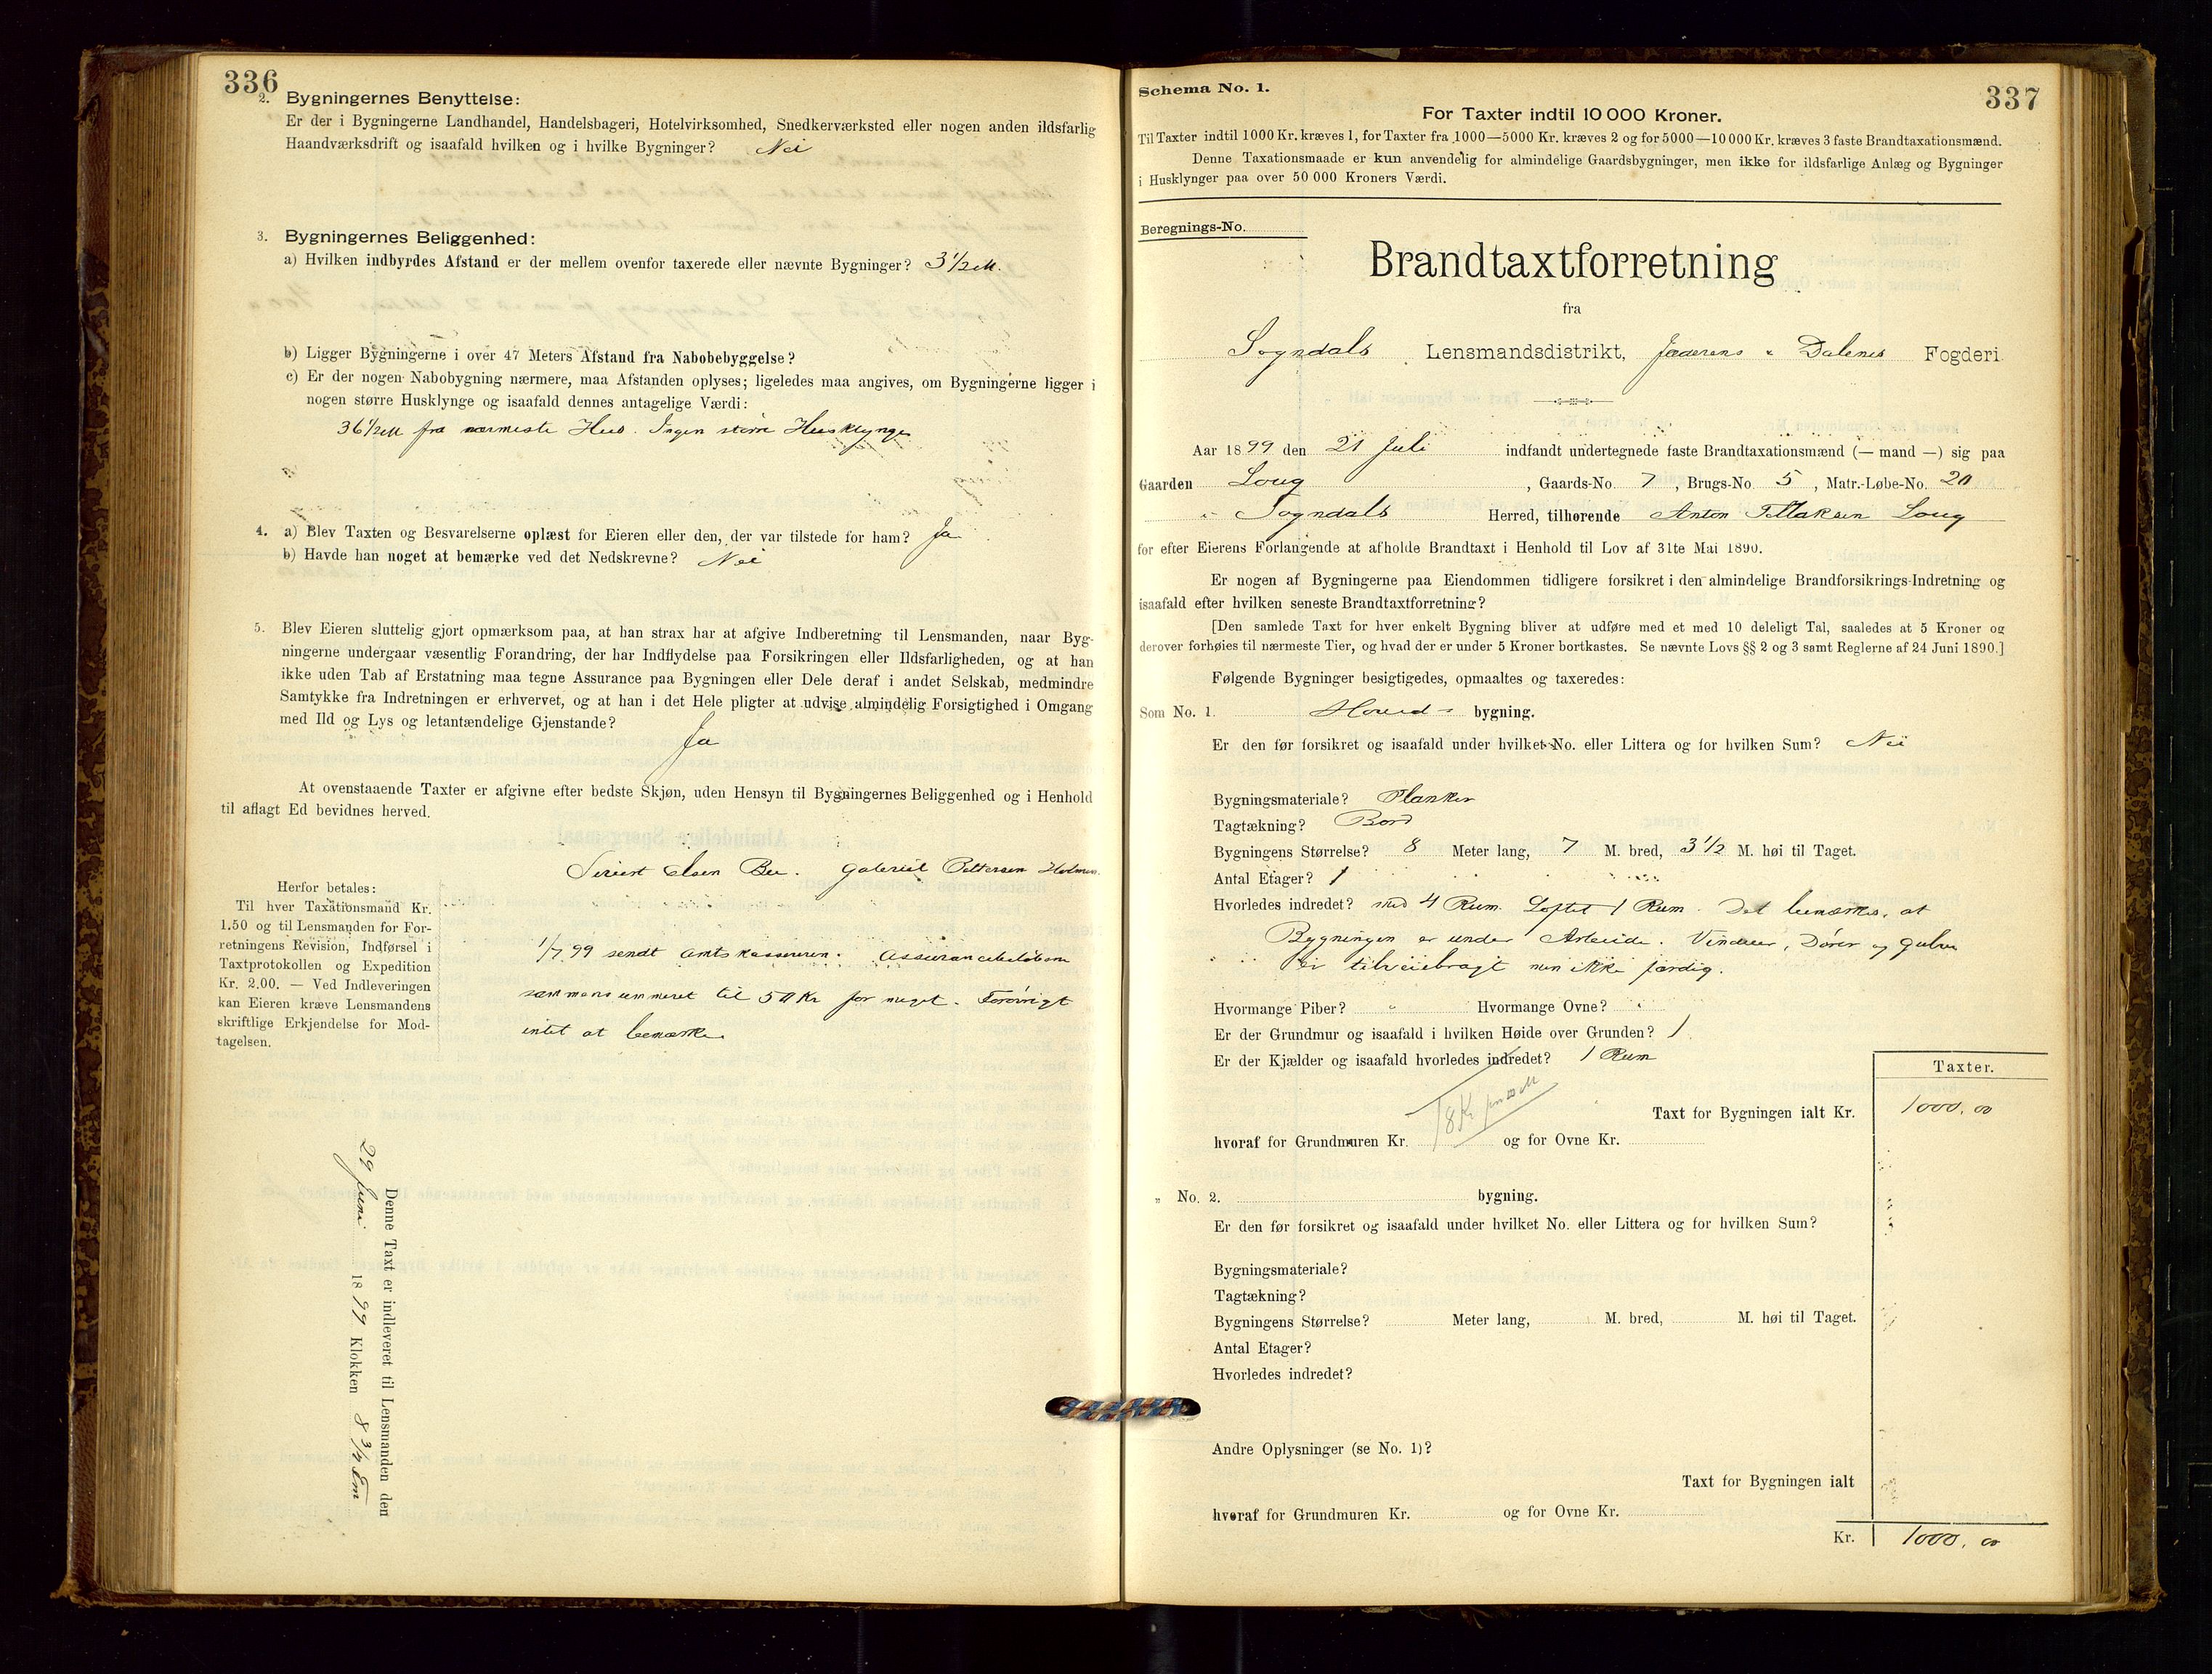 336
2. Bygningernes Benyttelse:
Er der i Bygningerne Landhandel, Handelsbageri, Hotelvirksomhed, Snedkerværksted eller nogen anden ildsfarlig
Haandværksdrift og isaafald hvilken og i hvilke Bygninger? Nei
3. Bygningernes Beliggenhed:
a) Hvilken indbyrdes Afstand er der mellem ovenfor taxerede eller nævnte Bygninger? 3 1/2 M.
b) Ligger Bygningerne i over 47 Meters Afstand fra Nabobebyggelse?
c) Er der nogen Nabobygning nærmere, maa Afstanden oplyses; ligeledes maa angives, om Bygningerne ligger i
nogen større Husklynge og isaafald dennes antagelige Værdi:
36 1/2 M fra nærmeste Hus. Ingen større Husklynge
4. a) Blev Taxten og Besvarelserne oplæst for Eieren eller den, der var tilstede for ham? Ja
b) Havde han noget at bemærke ved det Nedskrevne? Nei
5. Blev Eieren sluttelig gjort opmærksom paa, at han strax har at afgive Indberetning til Lensmanden, naar Byg-
ningerne undergaar væsentlig Forandring, der har Indflydelse paa Forsikringen eller Ildsfarligheden, og at han
ikke uden Tab af Erstatning maa tegne Assurance paa Bygningen eller Dele deraf i andet Selskab, medmindre
Samtykke fra Indretningen er erhvervet, og at han i det Hele pligter at udvise almindelig Forsigtighed i Omgang
med Ild og Lys og letantændelige Gjenstande?
Ja
At ovenstaaende Taxter er afgivne efter bedste Skjøn, uden Hensyn til Bygningernes Beliggenhed og i Henhold
til aflagt Ed bevidnes herved.
Sivert Olsen Bu. Gabriel Pettersen Holmen
Herfor betales:
Til hver Taxationsmand Kr.
1.50 og til Lensmanden for For-
retningens Revision, Indførsel i
Taxtprotokollen og Expedition
Kr. 2.00. — Ved Indleveringen
kan Eieren kræve Lensmandens
skriftlige Erkjendelse for Mod-
tagelsen.
1/7 99 sendt Amtskassereren. Assurancebeløbene
sammensummeret til 50 Kr for meget. Forøvrigt
intet at bemærke
Denne Taxt er indleveret til Lensmanden den
29 Juni 1899 Klokken 8 3/4 Em
Schema No. 1.
337
For Taxter indtil 10 000 Kroner.
Til Taxter indtil 1000 Kr. kræves 1, for Taxter fra 1000—5000 Kr. kræves 2 og for 5000—10 000 Kr. kræves 3 faste Brandtaxationsmænd.
Denne Taxationsmaade er kun anvendelig for almindelige Gaardsbygninger, men ikke for ildsfarlige Anlæg og Bygninger
i Husklynger paa over 50 000 Kroners Værdi.
Beregnings-No.
Brandtaxtforretning
fra
Sogndals Lensmandsdistrikt, Jæderens & Dalenes Fogderi
Aar 1899 den 21 Juli indfandt undertegnede faste Brandtaxationsmænd (— mand —) sig paa
Gaarden Loug, Gaards-No. 7, Brugs-No. 5, Matr.-Løbe-No. 20
i Sogndals Herred, tilhørende Anton Loug
for efter Eierens Forlangende at afholde Brandtaxt i Henhold til Lov af 31te Mai 1890.
Er nogen af Bygningerne paa Eiendommen tidligere forsikret i den almindelige Brandforsikrings-Indretning og
isaafald efter hvilken seneste Brandtaxtforretning?
[Den samlede Taxt for hver enkelt Bygning bliver at udføre med et med 10 deleligt Tal, saaledes at 5 Kroner og
derover forhøies til nærmeste Tier, og hvad der er under 5 Kroner bortkastes. Se nævnte Lovs §§ 2 og 3 samt Reglerne af 24 Juni 1890.]
Følgende Bygninger besigtigedes, opmaaltes og taxeredes:
Som No. 1. Hoved- bygning.
Er den før forsikret og isaafald under hvilket No. eller Littera og for hvilken Sum? Nei
Bygningsmateriale? Planker
Tagtækning? Bord
Bygningens Størrelse? 8 Meter lang, 7 M. bred, 3 1/2 M. høi til Taget.
Antal Etager? 1
Hvorledes indredet? med 4 Rum. Loftet 1 Rum. Det bemærkes, at
Bygningen er under Arbeide. Vinduer, Dører og Gulve
er tilveiebragt men ikke færdig.
Hvormange Piber? " Hvormange Ovne? "
Er der Grundmur og isaafald i hvilken Høide over Grunden? 1
Er der Kjælder og isaafald hvorledes indredet? 1 Rum
Taxter.
Taxt for Bygningen ialt Kr. 1000,00
18 Kr
hvoraf for Grundmuren Kr. og for Ovne Kr.
" No. 2. bygning.
Er den før forsikret og isaafald under hvilket No. eller Littera og for hvilken Sum?
Bygningsmateriale?
Tagtækning?
Bygningens Størrelse? Meter lang, M. bred, M. høi til Taget.
Antal Etager?
Hvorledes indredet?
Andre Oplysninger (se No. 1)?
Taxt for Bygningen ialt
hvoraf for Grundmuren Kr. og for Ovne Kr.
Kr. 1000,00